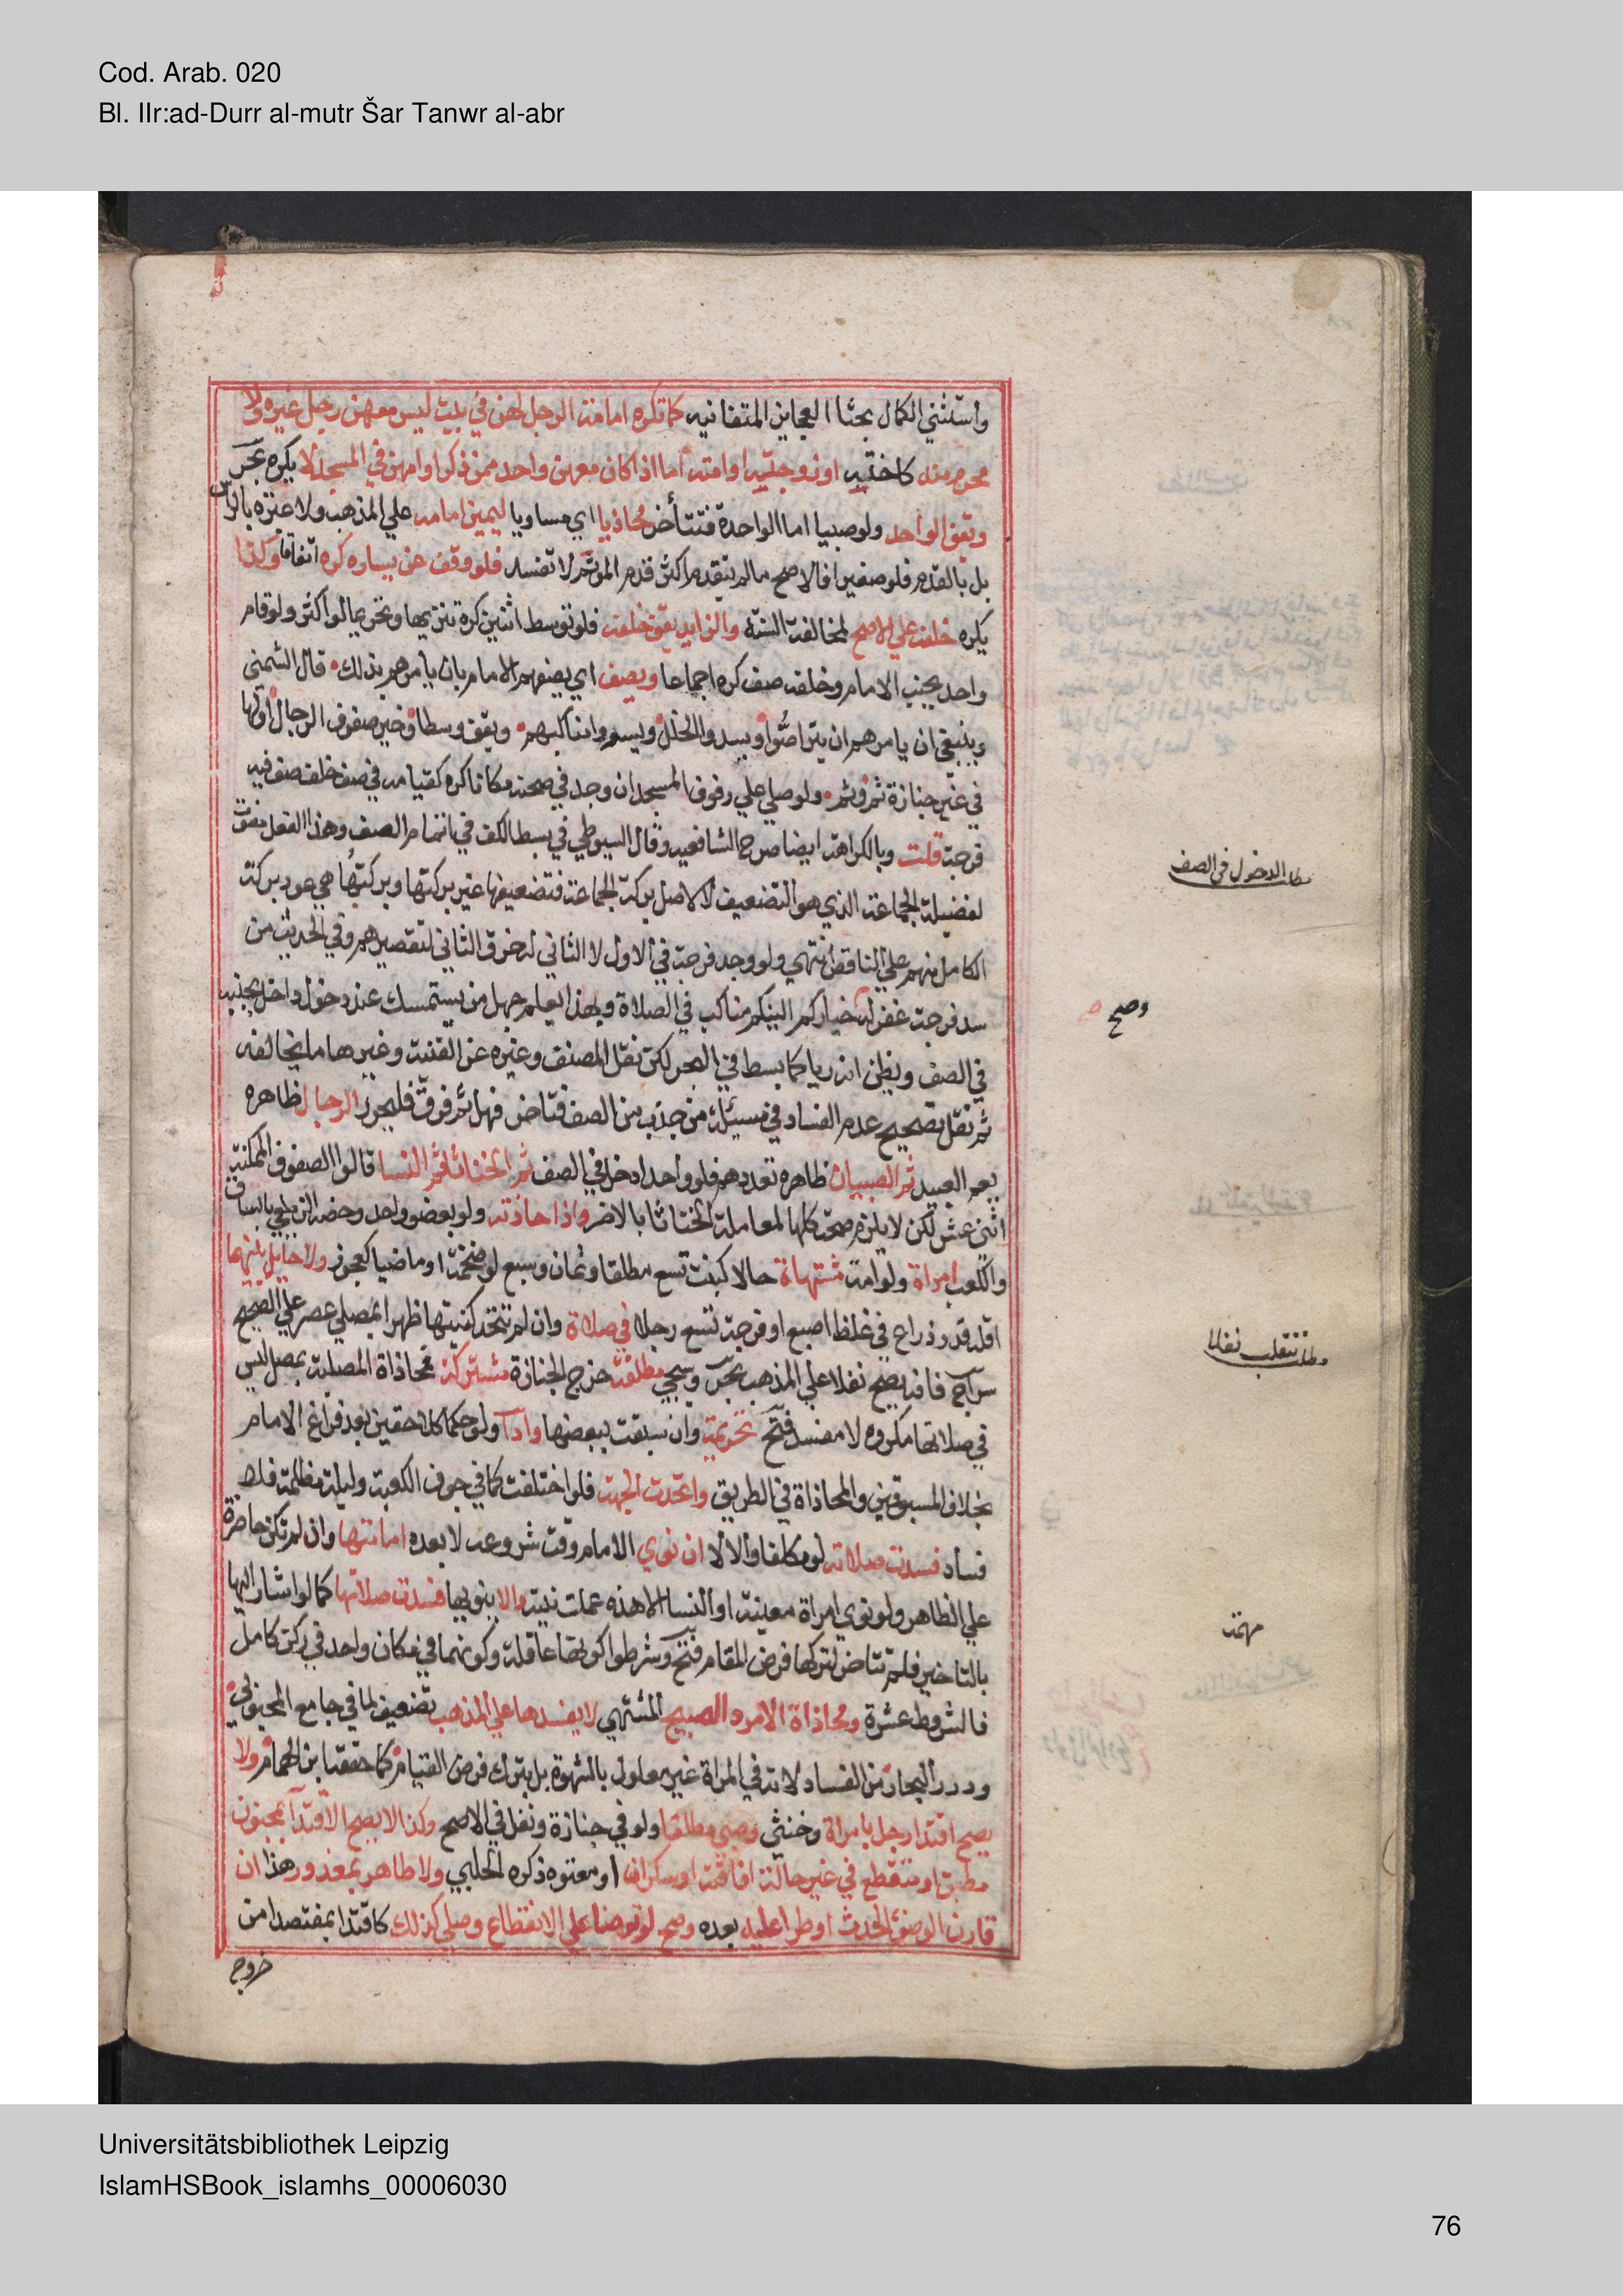 Cod. Arab. 020
Bl. IIr:ad-Durr al-mutr Šar Tanwr al-abr
واستثني الكمال بحثا العجايز المتفانيه كما تكره امامة الرجل لهن في بيت ليس معهن رجل غيره ولا
محرم منه كاخته او زوجته او امته اما اذا كان معهن واحد ممن ذكر او امهن في المسجد لا يكره بحر
ويقف الواحد ولو صبيا اما الواحدة فتتأخر محاذيا اي مساويا ليمين امامه علي المذهب ولا عبرة بالراس
بل بالقدم فلو صغيرا فالاصح مالم يتقدم اكثر قدم المؤتم لا تفسد فلو وقف عن يساره كره اتفاقا وكذا
يكره خلفه علي الاصح لمخالفة السنة والزايد يقف خلفه فلو توسط اثنين كره تنزيها وتحريما لو اكثر ولو قام
واحد بجنب الامام وخلفه صف كره اجماعا ويصف اي يصفهم الامام بان يامرهم بذلك قال الشمني
وينبغي ان يامرهم ان يتراصوا ويسدوا الخلل ويسووا مناكبهم ويقف وسطا وخير صفوف الرجال اولها
في غير جنازة ثم وثم ولو صلي علي رفوف المسجد ان وجد في صحنه مكانا كره كقيامه في صف خلف صف فيه
فرجة قلت وبالكراهة ايضا صرح الشافعيه وقال السيوطي في بسط الكف في اتمام الصف وهذا الفعل مفوت
لفضيلة الجماعة الذي هو التضعيف لا لاصل بركة الجماعة فتضعيفها غير بركتها وبركتها هي عود بركة
الكامل منهم علي الناقص انتهي ولو وجد فرجة في الاول لا الثاني له خرق الثاني لتقصيرهم وفي الحديث من
سد فرجة غفر له خياركم الينكم مناكب في الصلاة وبهذا يعلم جهل من يستمسك عند دخول داخل بجنبه
في الصف ويظن انه ريا كما بسط في البحر لكن نقل المصنف وغيره عن القنية وغيرها ما يخالفه
ثم نقل تصحيح عدم الفساد في مسيلة من جذب من الصف فتاخر فهل ثم فرق فليحرر الرجال ظاهره
يعم العبيد ثم الصبيان ظاهره تعددهم فلو واحدا دخل في الصف ثم الخناثا ثم النسا قالوا الصفوف الممكنة
اثني عشر لكن لا يلزم صحة كلها لمعاملة الخناثا بالاضر واذا حاذته ولو بعضو واحد وخصه الزيلعي بالساق
والكعب امراة ولو امة مشتهاة حالا كبنت تسع مطلقا وثمان وسبع لو ضخمة او ماضيا كعجوز ولا حايل بينهما
اقله قدر ذراع في غلظ اصبع او فرجة تسع رجلا في صلاة وان لم تتحد كنيتها ظهرا بمصلي عصر علي الصحيح
سراج فانه يصح نفلا علي المذهب بحر وسيجي مطلقة خرج الجنازة مشتركة فمحاذاة المصلية بمصل ليس
في صلاتها مكروه لا مفسد فتح تحريمة وان سبقت ببعضها وادآ ولو حكما كلاحقين بعد فراغ الامام
بخلاف المسبوقين والمحاذاة في الطريق واتحدت الجهة فلو اختلفت كما في جوف الكعبة وليلة مظلمة فلا
فساد فسدت صلاته لو مكلفا والا لا ان نوي الامام وقت شروعه لا بعده امامتها وان لم تكن حاضرة
علي الظاهر ولو نوي امراة معينة او النسا الا هذه عملت نيته والا ينويها فسدت صلاتها كما لو اشار اليها
بالتاخير فلم تتاخر لتركها فرض المقام فتح وشرطوا كونها عاقلة وكونهما في مكان واحد في ركن كامل
فالشروط عشرة ومحاذاة الامرد الصبيح المشتهي لا يفسدها علي المذهب تضعيف لما في جامع المحبوبي
ودرر البحار من الفساد لانه في المراة غير معلول بالشهوة بل بترك فرض القيام كما حققه ابن الهمام ولا
يصح اقتدا رجل بامراة وخنثي وصبي مطلقا ولو في جنازة ونفل في الاصح وكذا لا يصح الاقتدآ بمجنون
مطبق او متقطع في غير حالة افاقته او سكران او معتوه ذكره الحلبي ولا طاهر بمعذور هذا ان
قارن الوضو الحدث او طرا عليه بعده وصح لو توضا علي الانقطاع وصلي كذلك كاقتدا بمفتصد امن
خروج
مطلب الدخول في الصف
وصح
مطلب تنقلب نفلا
مهمة
Universitätsbibliothek Leipzig
IslamHSBook_islamhs_00006030
76